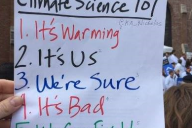 Climate Science 101
1. It's Warming
2. It's Us
3. We're Sure
4. It's Bad
5. We Can Fix It